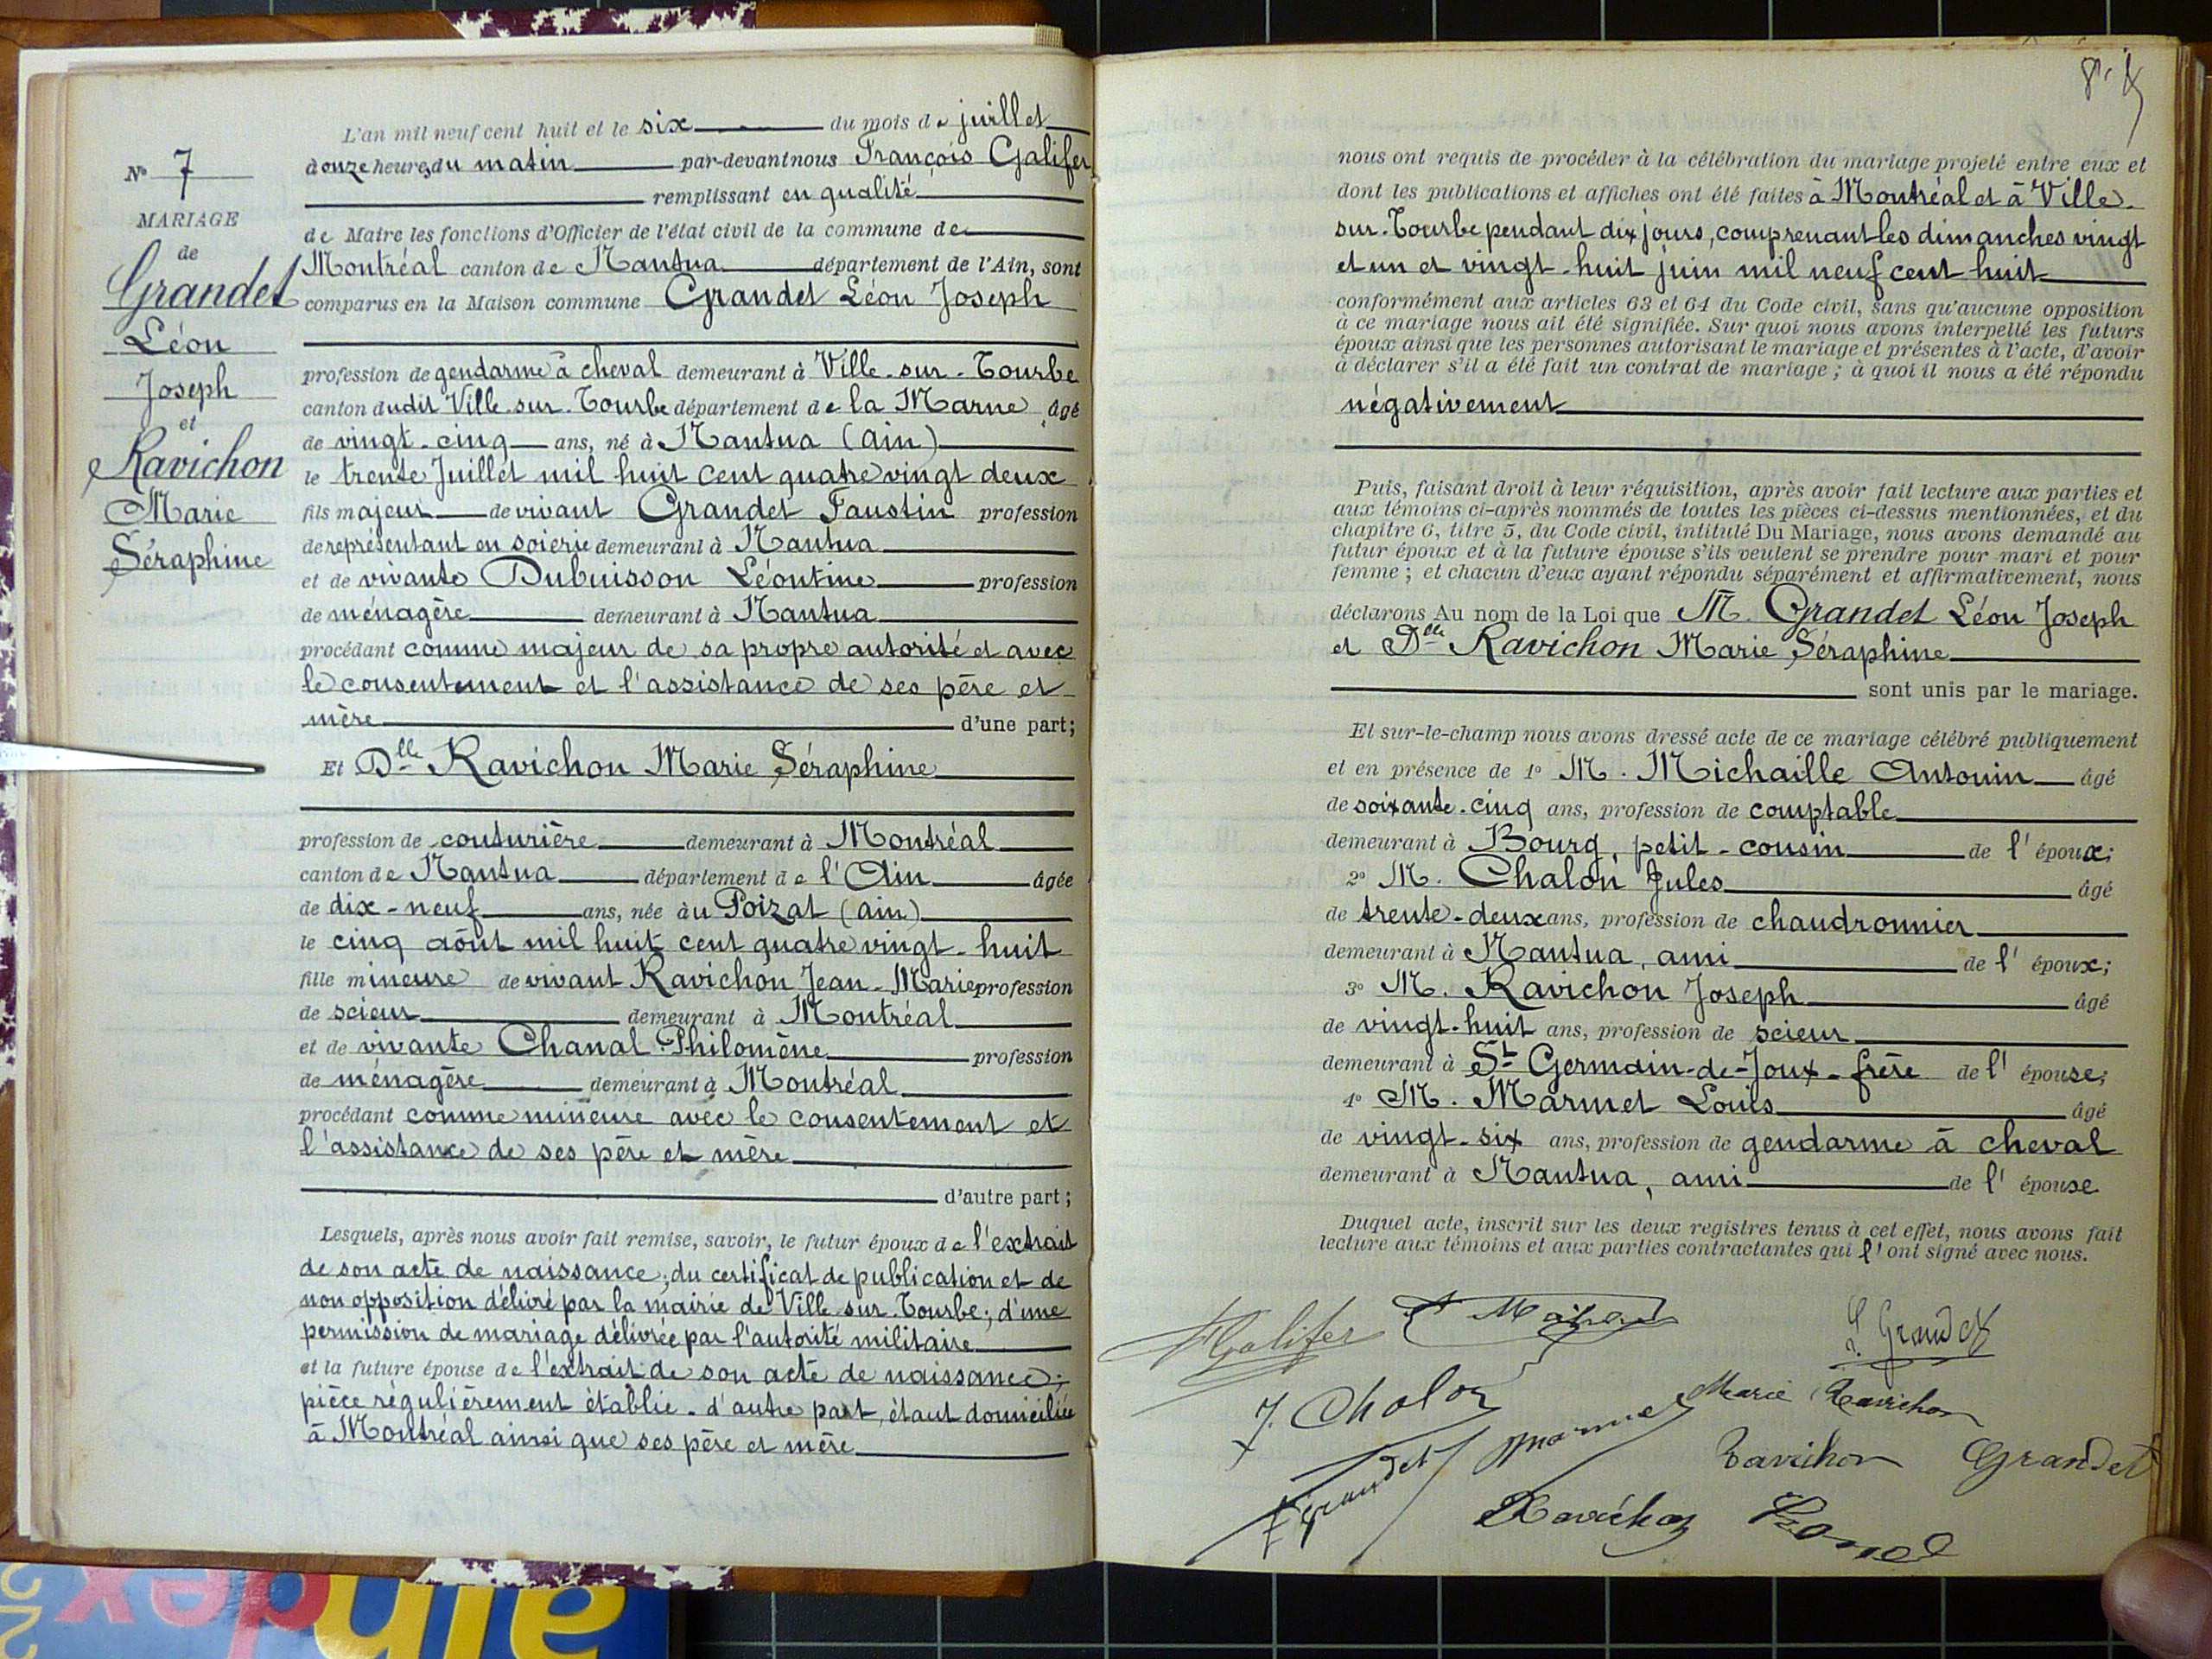 L'an mil neuf cent huit et le six du mois de juillet
à onze heures du matin par-devant nous François Galifer
remplissant en qualité
de Maire les fonctions d'Officier de l'état civil de la commune de
Montréal canton de Nantua département de l'Ain, sont
comparus en la Maison commune Grandet Léon Joseph
profession de gendarme à cheval demeurant à Ville-sur-Tourbe
canton dudit Ville-sur-Tourbe département de la Marne âgé
de vingt-cinq ans, né à Nantua (Ain)
le trente Juillet mil huit cent quatre vingt deux
fils majeur de vivant Grandet Faustin profession
de représentant en soierie demeurant à Nantua
et de vivante Dubuisson Léontine profession
de ménagère demeurant à Nantua
procédant comme majeur de sa propre autorité et avec
le consentement et l'assistance de ses père et
mère d'une part;
Et Dlle Ravichon Marie Séraphine
profession de couturière demeurant à Montréal
canton de Nantua département de l'Ain âgée
de dix-neuf ans, née au Poizat (ain)
le cinq août mil huit cent quatre vingt-huit
fille mineure de vivant Ravichon Jean-Marie profession
de scieur demeurant à Montréal
et de vivante Chanal Philomène profession
de ménagère demeurant à Montréal
procédant comme mineure avec le consentement et
l'assistance de ses père et mère
d'autre part;
Lesquels, après nous avoir fait remise, savoir, le futur époux de l'extrait
de son acte de naissance; du certificat de publication et de
non opposition délivré par la mairie de Ville-sur-Tourbe; d'une
permission de mariage délivrée par l'autorité militaire
et la future épouse de l'extrait de son acte de naissance;
pièce régulièrement établie. d'autre part, étant domiciliée
à Montréal ainsi que ses père et mère
No 7
MARIAGE
de
Grandet
Léon
Joseph
et
Ravichon
Marie
Séraphine
nous ont requis de procéder à la célébration du mariage projeté entre eux et
dont les publications et affiches ont été faites à Montréal et à Ville-
sur-Tourbe pendant dix jours, comprenant les dimanches vingt
et un et vingt-huit juin mil neuf cent huit
conformément aux articles 63 et 64 du Code civil, sans qu'aucune opposition
à ce mariage nous ait été signifiée. Sur quoi nous avons interpellé les futurs
époux ainsi que les personnes autorisant le mariage et présentes à l'acte, d'avoir
à déclarer s'il a été fait un contrat de mariage; à quoi il nous a été répondu
négativement
Puis, faisant droit à leur réquisition, après avoir fait lecture aux parties et
aux témoins ci-après nommés de toutes les pièces ci-dessus mentionnées, et du
chapitre 6, titre 5, du Code civil, intitulé Du Mariage, nous avons demandé au
futur époux et à la future épouse s'ils veulent se prendre pour mari et pour
femme; et chacun d'eux ayant répondu séparément et affirmativement, nous
déclarons Au nom de la Loi que M. Grandet Léon Joseph
et Dlle Ravichon Marie Séraphine
sont unis par le mariage.
Et sur-le-champ nous avons dressé acte de ce mariage célébré publiquement
et en présence de 1o M. Michaille Antonin âgé
de soixante-cinq ans, profession de comptable
demeurant à Bourg, petit-cousin de l'époux;
2o M. Chalon Jules âgé
de trente-deux ans, profession de chaudronnier
demeurant à Nantua, ami de l'époux;
3o M. Ravichon Joseph âgé
de vingt-huit ans, profession de scieur
demeurant à St Germain-de-Joux-frère de l'épouse;
4o M. Marmet Louis âgé
de vingt-six ans, profession de gendarme à cheval
demeurant à Nantua, ami de l'épouse
Duquel acte, inscrit sur les deux registres tenus à cet effet, nous avons fait
lecture aux témoins et aux parties contractantes qui l'ont signé avec nous.
Galifer
L. Grandet
J. Chalon
Marmet
Marie Ravichon
Ravichon
Grandet
F Grandet
Ravichon